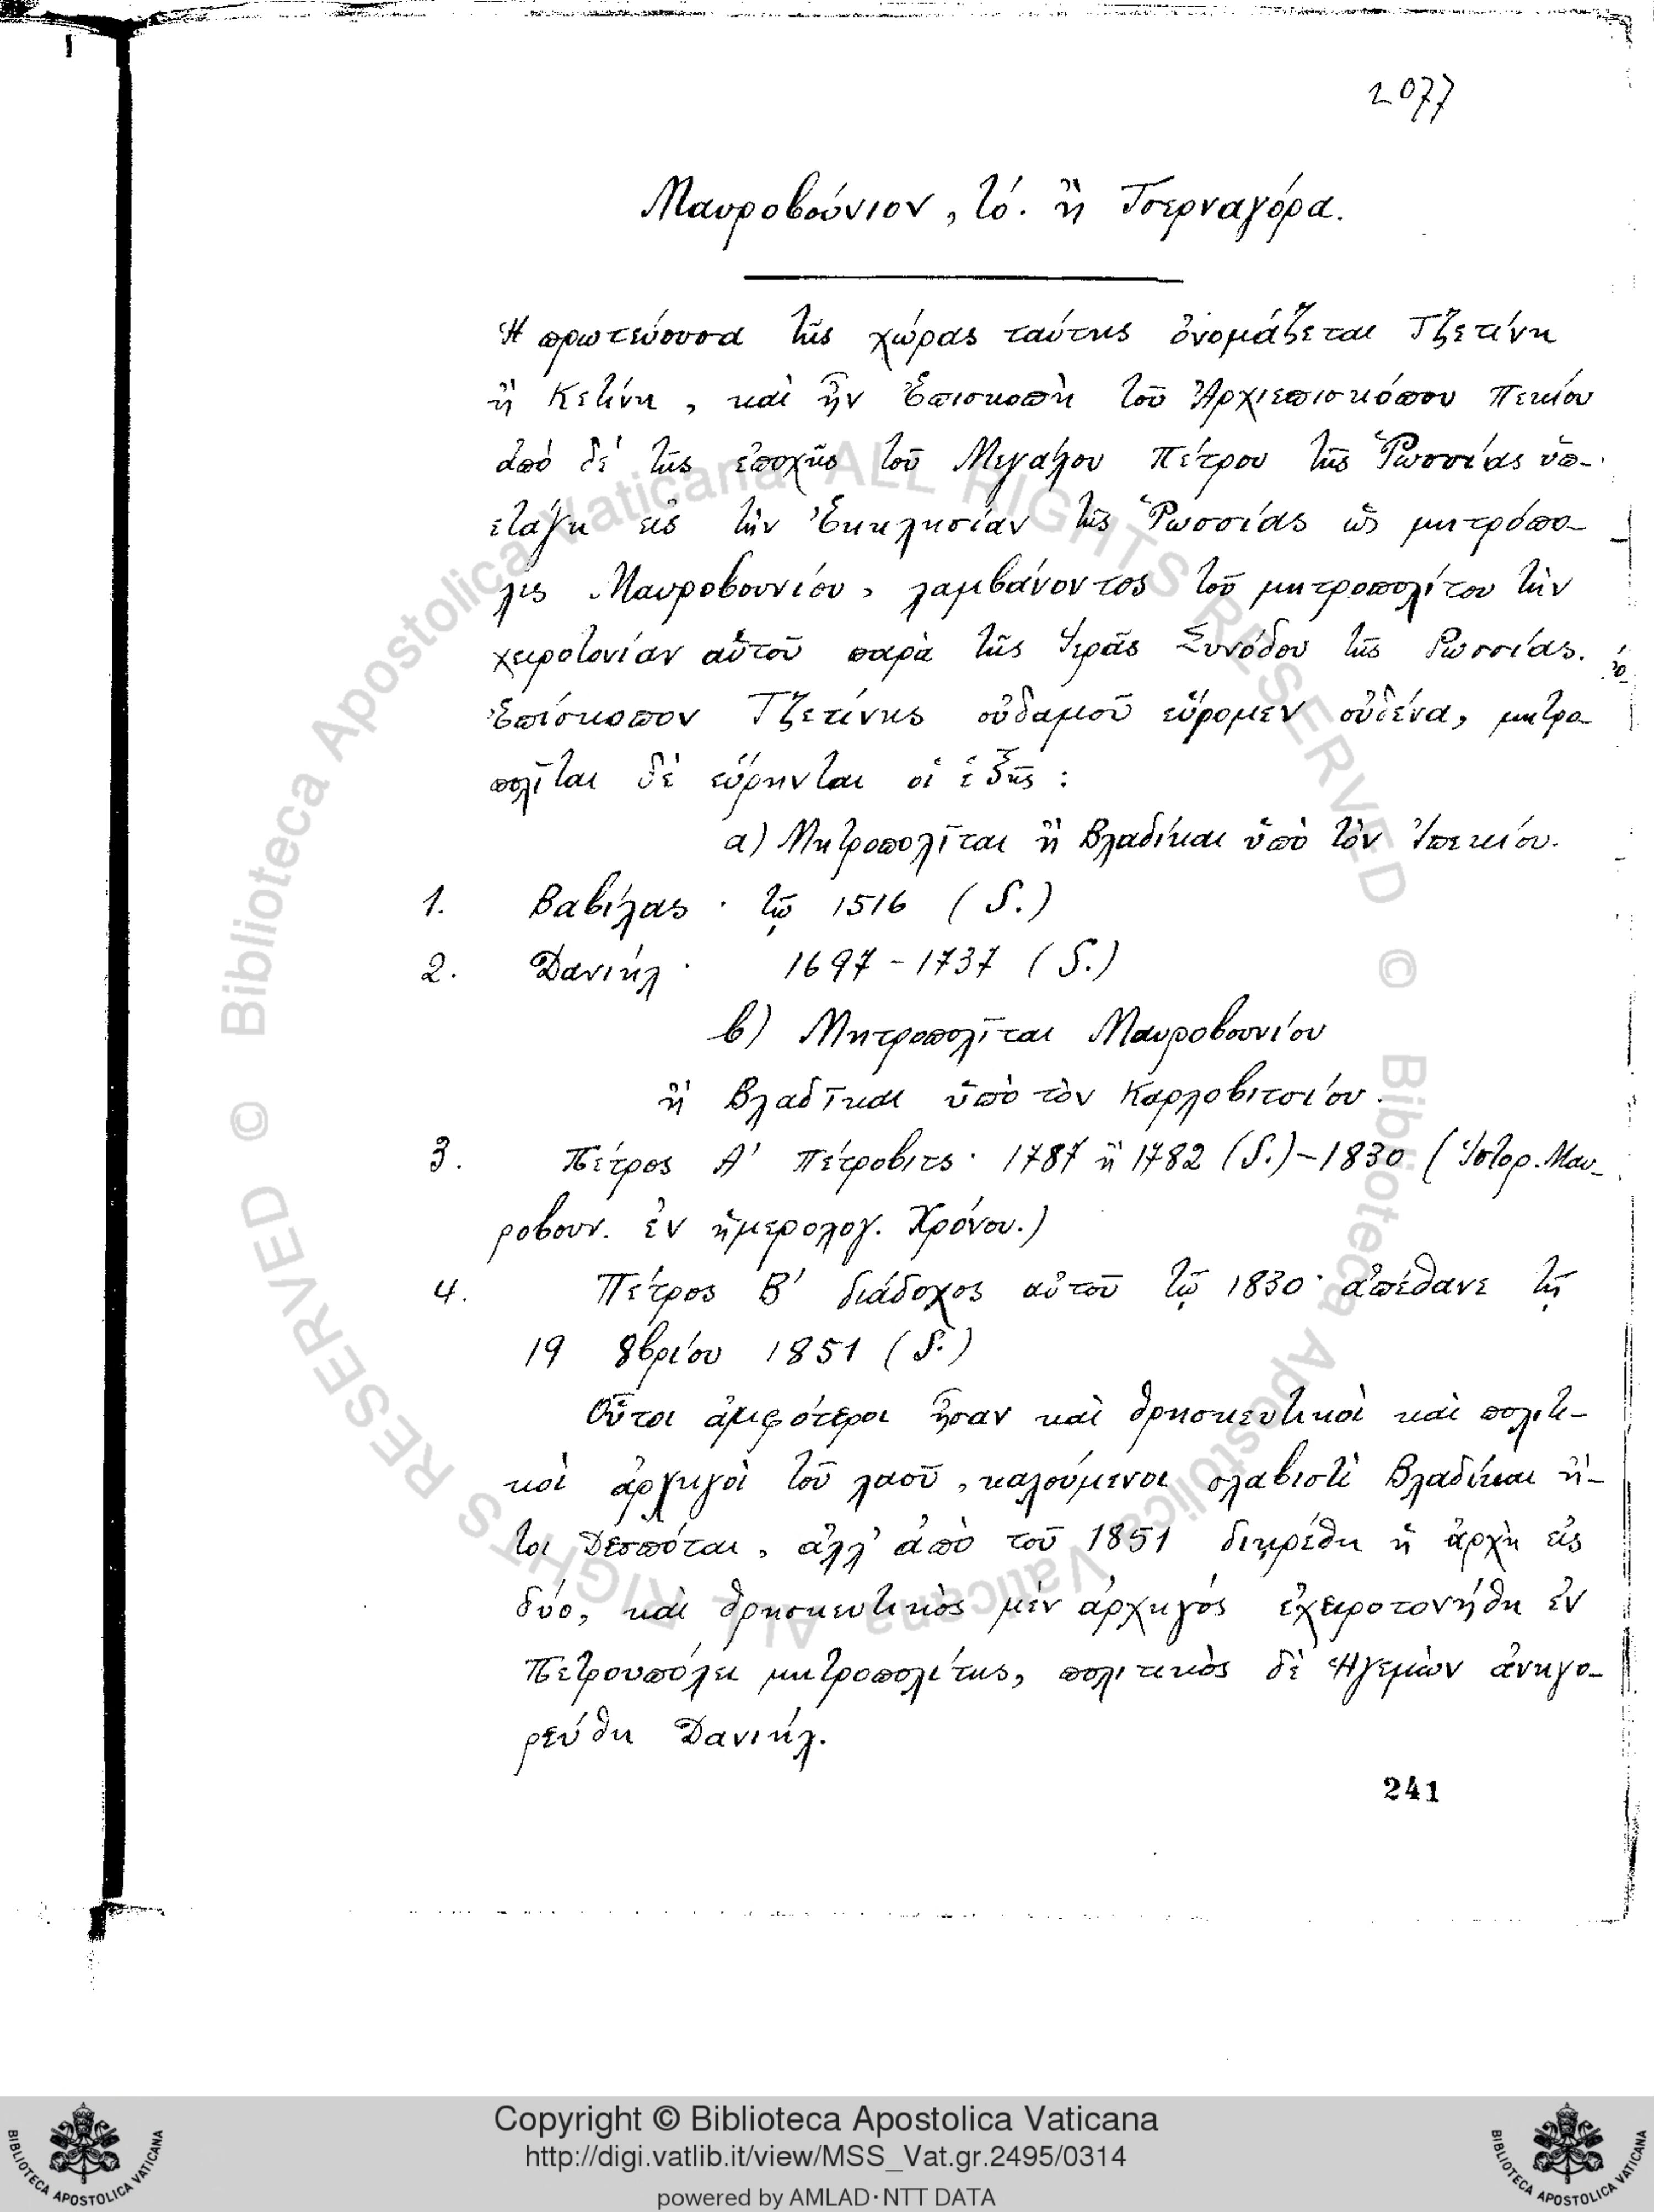 2077
Μαυροβούνιον, τό. ἢ Τσερναγόρα.
Ἡ πρωτεύουσα τῆς χώρας ταύτης ὀνομάζεται Τζετίνη
ἢ Κετίνη, καὶ ἦν Ἐπισκοπὴ τοῦ Ἀρχιεπισκόπου Πεκίου
ἀπὸ δὲ τῆς ἐποχῆς τοῦ Μεγάλου Πέτρου τῆς Ῥωσσίας ὑπ-
ετάγη εἰς τὴν Ἐκκλησίαν τῆς Ῥωσσίας ὡς μητρόπο-
λις Μαυροβουνίου, λαμβάνοντος τοῦ μητροπολίτου τὴν
χειροτονίαν αὐτοῦ παρὰ τῆς Ἱερᾶς Συνόδου τῆς Ρωσσίας.
Ἐπίσκοπον Τζετίνης οὐδαμοῦ εὕρομεν οὐδένα, μητρο-
πολῖται δὲ εὕρηνται οἱ ἑξῆς:
α) Μητροπολῖται ἢ Βλαδίκαι ὑπὸ τὸν Ἰπεκίου.
1. Βαβίλας · τῷ 1516 (S.)
2. Δανιήλ · 1697 - 1737 (S.)
β) Μητροπολῖται Μαυροβουνίου
ἢ Βλαδῖκαι ὑπὸ τὸν Καρλοβιτσίου.
3. Πέτρος Α' Πέτροβιτς · 1787 ἢ 1782 (S.) - 1830 (Ἱστορ. Μαυ-
ροβουν. ἐν ἡμερολογ. Χρόνου.)
4. Πέτρος Β' διάδοχος αὐτοῦ τῷ 1830 · ἀπέθανε τῇ
19 8βρίου 1851 (S.)
Οὗτοι ἀμφότεροι ἦσαν καὶ θρησκευτικοὶ καὶ πολιτι-
κοὶ ἀρχηγοὶ τοῦ λαοῦ, καλούμενοι σλαβιστὶ Βλαδίκαι ἤ-
τοι Δεσπόται, ἀλλ' ἀπὸ τοῦ 1851 διῃρέθη ἡ ἀρχὴ εἰς
δύο, καὶ θρησκευτικὸς μὲν ἀρχηγὸς ἐχειροτονήθη ἐν
Πετρουπόλει μητροπολίτης, πολιτικὸς δὲ Ἡγεμὼν ἀνηγο-
ρεύθη Δανιήλ.
241
© Biblioteca Apostolica Vaticana ALL RIGHTS RESERVED © Biblioteca Apostolica Vaticana ALL RIGHTS RESERVED
Copyright © Biblioteca Apostolica Vaticana
http://digi.vatlib.it/view/MSS_Vat.gr.2495/0314
powered by AMLAD·NTT DATA
BIBLIOTECA APOSTOLICA VATICANA
BIBLIOTECA APOSTOLICA VATICANA